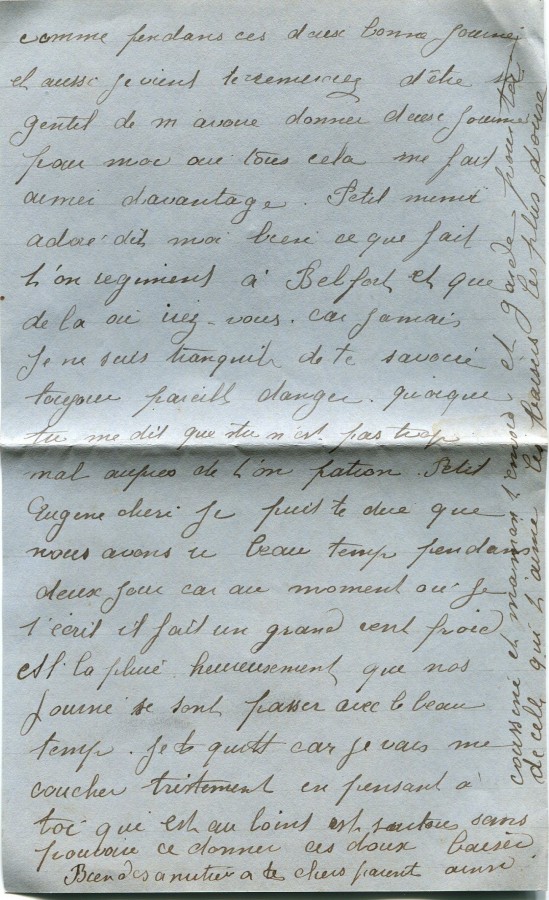 comme pendans ces deux bonne journei
et aussi je vient te remerciez d'être si
gentil de m avoue donner deux journe
pour moi ou tous cela me fait
aimer davantage. Petit mimi
adoré dit moi bien ce que fait
t'on regiment à Belfort et que
de la ou irez-vous. car jamais
je ne suis tranquil de te savoir
toujour pareill danger. quoique
tu me dit que tu n'est pas trop
mal aupres de t'on patron. Petit
Eugene cheri je puis te dire que
nous avons u beau temp pendans
deux jour car au moment ou je
t'écrit il fait un grand vent froid
est la pluie heureusement que nos
journé se sont passer avec le beau
temp. Je te quitt car je vais me
coucher tristement en pensant a
toi qui est au loins est surtou sans
pouvoir ce donner ces doux baisér.
Bien des amitier a te chers parent ainsi
cousine et maman t'embras et garde pour toi
de celle qui t'aime les baisers les plus doux